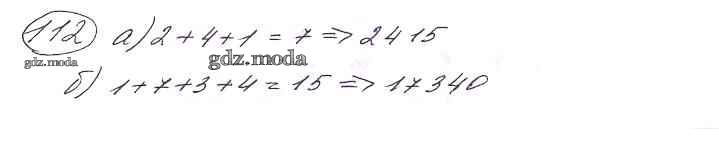 112 а) 2 + 4 + 1 = 7 => 2415
gdz.moda gdz.moda
б) 1 + 7 + 3 + 4 = 15 => 17340